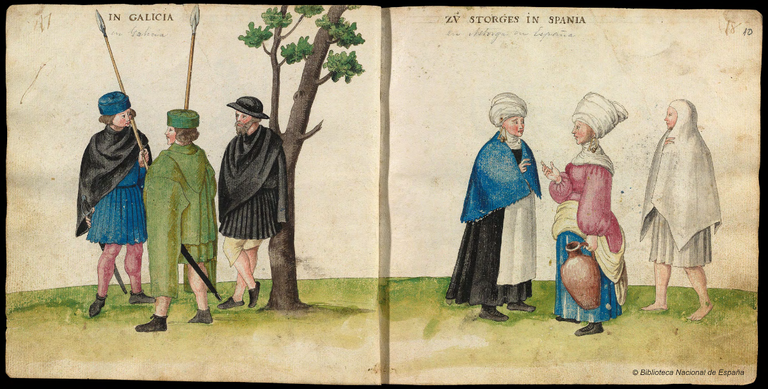 IN GALICIA
en Galicia
ZV̊ STORGES IN SPANIA
en Astorga en España
10
© Biblioteca Nacional de España